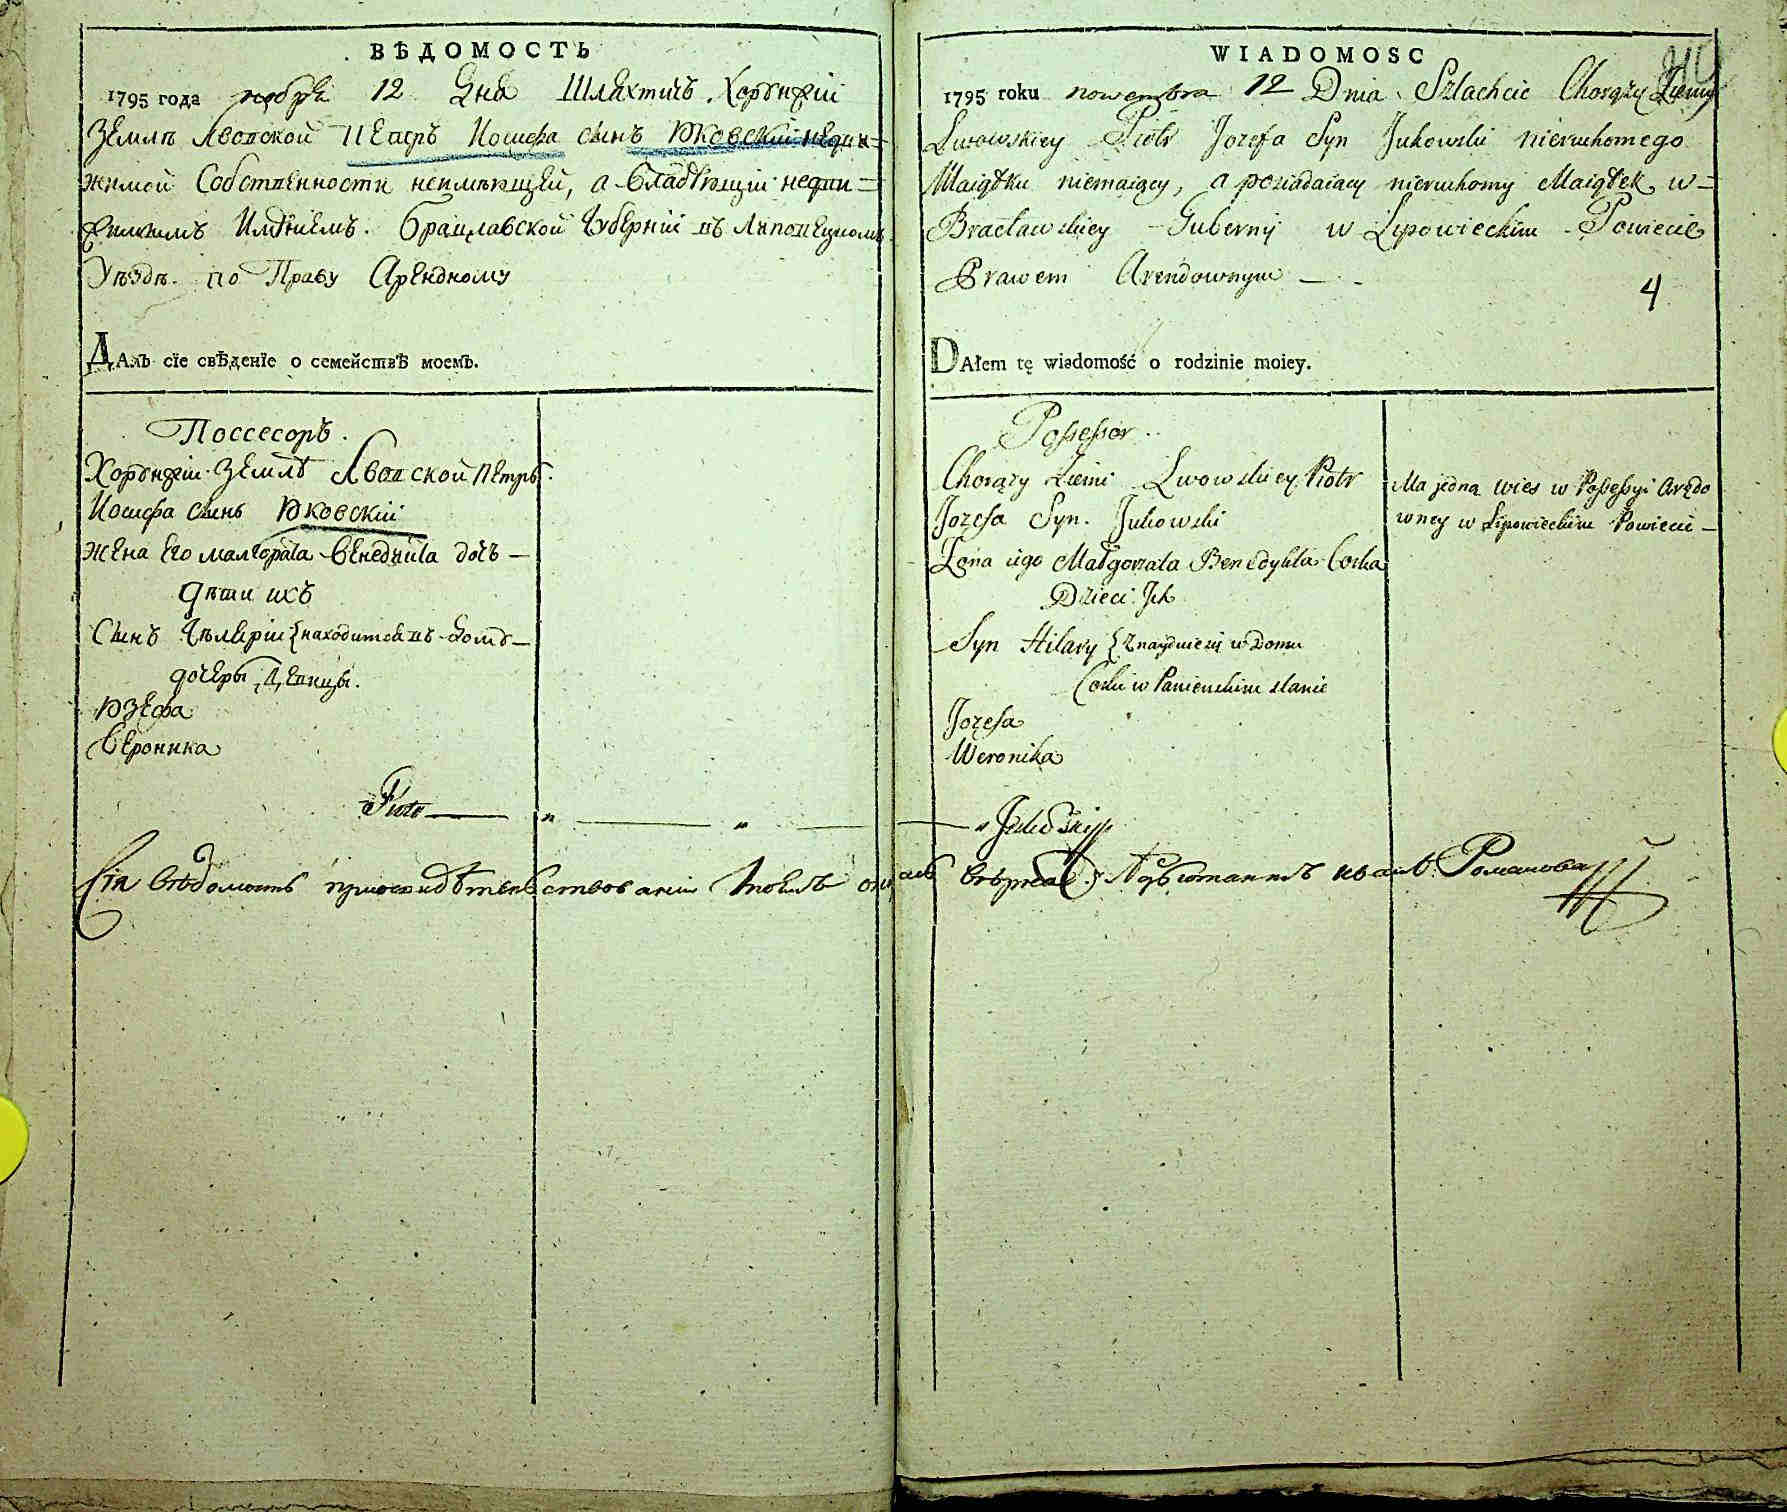 ВѢДОМОСТЬ
1795 года ноября 12 Дня Шляхтичъ Хорунжiй
Земли Лвовской Петръ Иосифа сынъ Юковскiй недви=
жимой Собственности неимѣющей, а Владѣющiй недви=
жимымъ Имѣнiемъ. Брацлавской Губернiи въ Липовецкомъ
Уѣздѣ. по Праву Арендному
ДАлъ сїе свѣденїе о семействѣ моемъ.
Поссесоръ.
Хорунжiй Землѣ Лвовской Петръ
Иосифа сынъ Юковскiй
жена Его малгората Бенедыкта дочь —
дѣти ихъ
Сынъ Гѣлярiи {находится въ домѣ —
дочеры Дѣвицы.
Юзефа
Вероника
Piotr
WIADOMOSC
1795 roku nowembra 12 Dnia Szlachcic Chorąży Ziemi
Lwowskiey Piotr Jozefa Syn Jukowski nieruchomego
Maiątku niemaiący, a poziadaiący nieruchomy Maiątek w=
Bracławskiey Guberny w Lipowieckim Powiecie
Prawem Arendownym —
4
DAłem tę wiadomość o rodzinie moiey.
Possessor
Chorąży Ziemi Lwowskiey Piotr
Jozefa Syn. Jukowski
Zona iego Małgorzata Benedykta Corka
Dzieci Jch
Syn Hilary {Znayduie się w Domu
Corki w Panienskim stanie
Jozefa
Weronika
Ma jedną wies w Possessyi Arędo
wney w Lipowieckim Powiecie —
Jukowski
Сiя вѣдомость при освидѣтельствованiи Мноюъ оказалась вѣрна Иванъ Романовъ